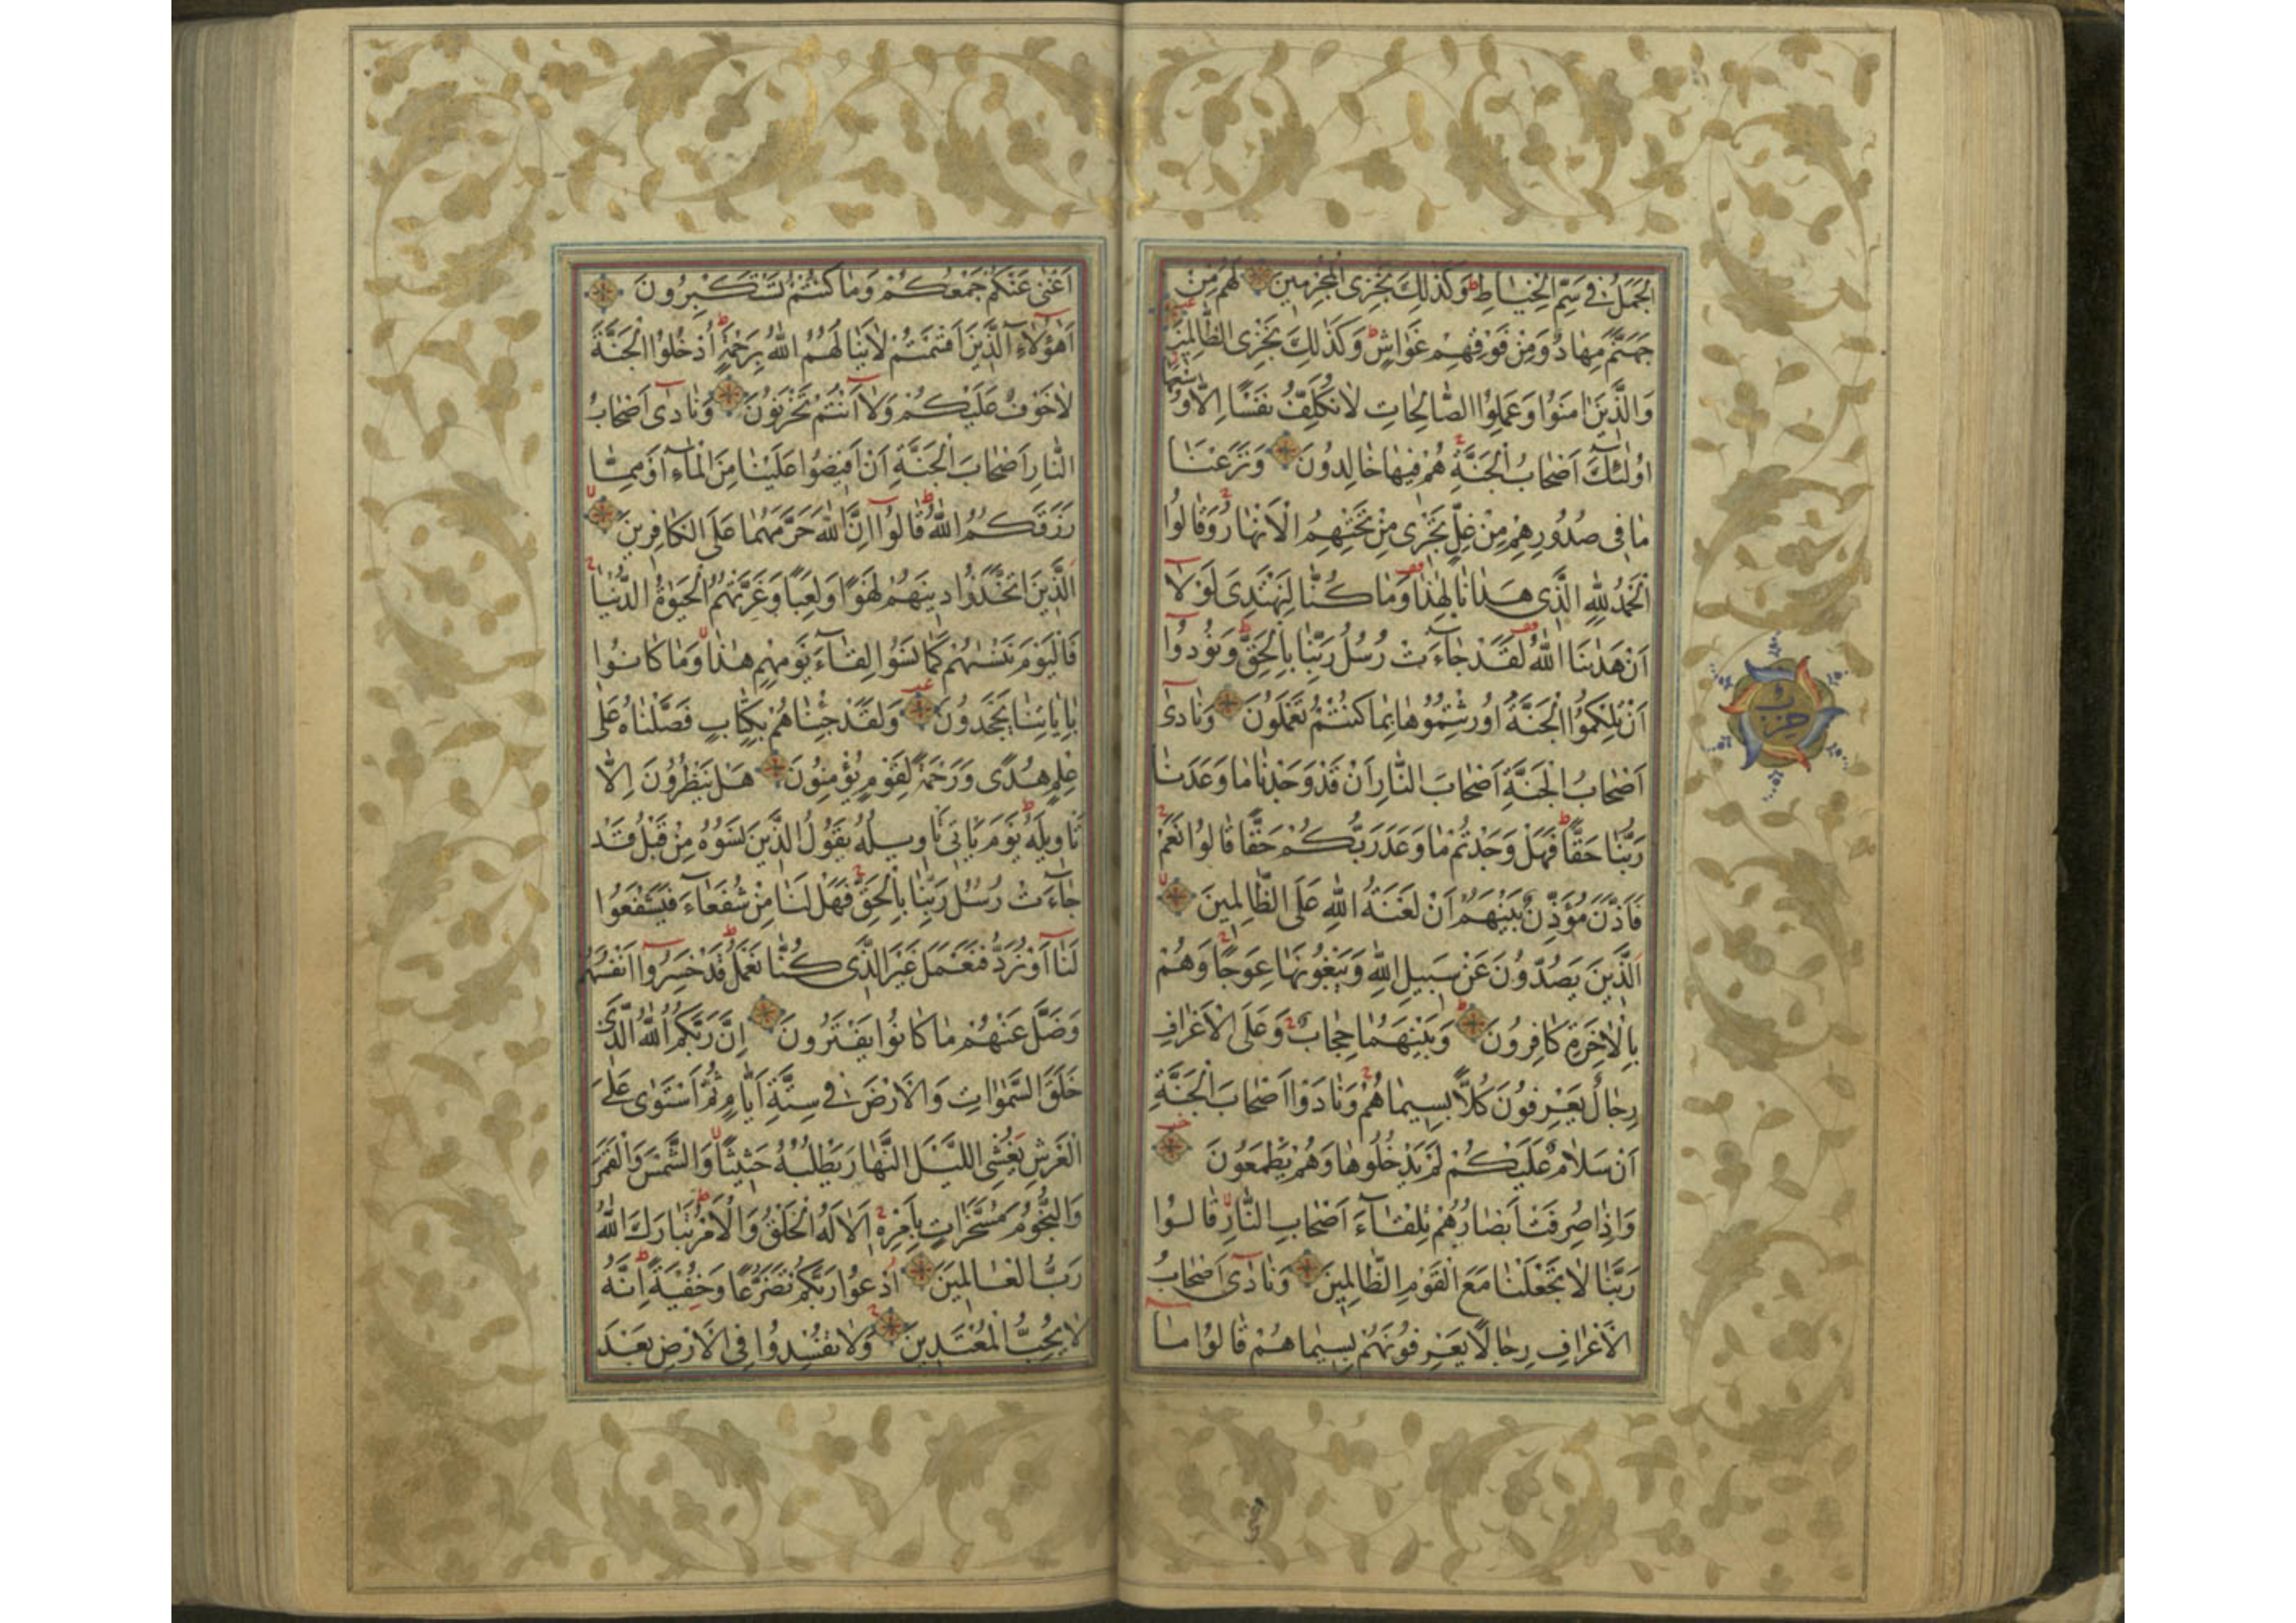 الْجَمَلُ فِي سَمِّ الْخِيَاطِ وَكَذٰلِكَ نَجْزِي الْمُجْرِمِينَ لَهُمْ مِنْ
جَهَنَّمَ مِهَادٌ وَمِنْ فَوْقِهِمْ غَوَاشٍ وَكَذٰلِكَ نَجْزِي الظَّالِمِينَ
وَالَّذِينَ اٰمَنُوا وَعَمِلُوا الصَّالِحَاتِ لَا نُكَلِّفُ نَفْسًا اِلَّا وُسْعَهَا
اُولٰئِكَ اَصْحَابُ الْجَنَّةِ هُمْ فِيهَا خَالِدُونَ وَنَزَعْنَا
مَا فِي صُدُورِهِمْ مِنْ غِلٍّ تَجْرِي مِنْ تَحْتِهِمُ الْاَنْهَارُ وَقَالُوا
الْحَمْدُ لِلّٰهِ الَّذِي هَدَانَا لِهٰذَا وَمَا كُنَّا لِنَهْتَدِيَ لَوْلَا
اَنْ هَدٰينَا اللّٰهُ لَقَدْ جَاءَتْ رُسُلُ رَبِّنَا بِالْحَقِّ وَنُودُوا
اَنْ تِلْكُمُ الْجَنَّةُ اُورِثْتُمُوهَا بِمَا كُنْتُمْ تَعْمَلُونَ وَنَادٰى
اَصْحَابُ الْجَنَّةِ اَصْحَابَ النَّارِ اَنْ قَدْ وَجَدْنَا مَا وَعَدَنَا
رَبُّنَا حَقًّا فَهَلْ وَجَدْتُمْ مَا وَعَدَ رَبُّكُمْ حَقًّا قَالُوا نَعَمْ
فَاَذَّنَ مُؤَذِّنٌ بَيْنَهُمْ اَنْ لَعْنَةُ اللّٰهِ عَلَى الظَّالِمِينَ
اَلَّذِينَ يَصُدُّونَ عَنْ سَبِيلِ اللّٰهِ وَيَبْغُونَهَا عِوَجًا وَهُمْ
بِالْاٰخِرَةِ كَافِرُونَ وَبَيْنَهُمَا حِجَابٌ وَعَلَى الْاَعْرَافِ
رِجَالٌ يَعْرِفُونَ كُلًّا بِسِيمَاهُمْ وَنَادَوْا اَصْحَابَ الْجَنَّةِ
اَنْ سَلَامٌ عَلَيْكُمْ لَمْ يَدْخُلُوهَا وَهُمْ يَطْمَعُونَ
وَاِذَا صُرِفَتْ اَبْصَارُهُمْ تِلْقَاءَ اَصْحَابِ النَّارِ قَالُوا
رَبَّنَا لَا تَجْعَلْنَا مَعَ الْقَوْمِ الظَّالِمِينَ وَنَادٰى اَصْحَابُ
الْاَعْرَافِ رِجَالًا يَعْرِفُونَهُمْ بِسِيمَاهُمْ قَالُوا مَا
حزب
اَغْنٰى عَنْكُمْ جَمْعُكُمْ وَمَا كُنْتُمْ تَسْتَكْبِرُونَ
اَهٰؤُلَاءِ الَّذِينَ اَقْسَمْتُمْ لَا يَنَالُهُمُ اللّٰهُ بِرَحْمَةٍ اُدْخُلُوا الْجَنَّةَ
لَا خَوْفٌ عَلَيْكُمْ وَلَا اَنْتُمْ تَحْزَنُونَ وَنَادٰى اَصْحَابُ
النَّارِ اَصْحَابَ الْجَنَّةِ اَنْ اَفِيضُوا عَلَيْنَا مِنَ الْمَاءِ اَوْ مِمَّا
رَزَقَكُمُ اللّٰهُ قَالُوا اِنَّ اللّٰهَ حَرَّمَهُمَا عَلَى الْكَافِرِينَ
اَلَّذِينَ اتَّخَذُوا دِينَهُمْ لَهْوًا وَلَعِبًا وَغَرَّتْهُمُ الْحَيٰوةُ الدُّنْيَا
فَالْيَوْمَ نَنْسٰيهُمْ كَمَا نَسُوا لِقَاءَ يَوْمِهِمْ هٰذَا وَمَا كَانُوا
بِاٰيَاتِنَا يَجْحَدُونَ وَلَقَدْ جِئْنَاهُمْ بِكِتَابٍ فَصَّلْنَاهُ عَلٰى
عِلْمٍ هُدًى وَرَحْمَةً لِقَوْمٍ يُؤْمِنُونَ هَلْ يَنْظُرُونَ اِلَّا
تَاْوِيلَهُ يَوْمَ يَاْتِي تَاْوِيلُهُ يَقُولُ الَّذِينَ نَسُوهُ مِنْ قَبْلُ قَدْ
جَاءَتْ رُسُلُ رَبِّنَا بِالْحَقِّ فَهَلْ لَنَا مِنْ شُفَعَاءَ فَيَشْفَعُوا
لَنَا اَوْ نُرَدُّ فَنَعْمَلَ غَيْرَ الَّذِي كُنَّا نَعْمَلُ قَدْ خَسِرُوا اَنْفُسَهُمْ
وَضَلَّ عَنْهُمْ مَا كَانُوا يَفْتَرُونَ اِنَّ رَبَّكُمُ اللّٰهُ الَّذِي
خَلَقَ السَّمٰوَاتِ وَالْاَرْضَ فِي سِتَّةِ اَيَّامٍ ثُمَّ اسْتَوٰى عَلَى
الْعَرْشِ يُغْشِي اللَّيْلَ النَّهَارَ يَطْلُبُهُ حَثِيثًا وَالشَّمْسَ وَالْقَمَرَ
وَالنُّجُومَ مُسَخَّرَاتٍ بِاَمْرِهِ اَلَا لَهُ الْخَلْقُ وَالْاَمْرُ تَبَارَكَ اللّٰهُ
رَبُّ الْعَالَمِينَ اُدْعُوا رَبَّكُمْ تَضَرُّعًا وَخُفْيَةً اِنَّهُ
لَا يُحِبُّ الْمُعْتَدِينَ وَلَا تُفْسِدُوا فِي الْاَرْضِ بَعْدَ